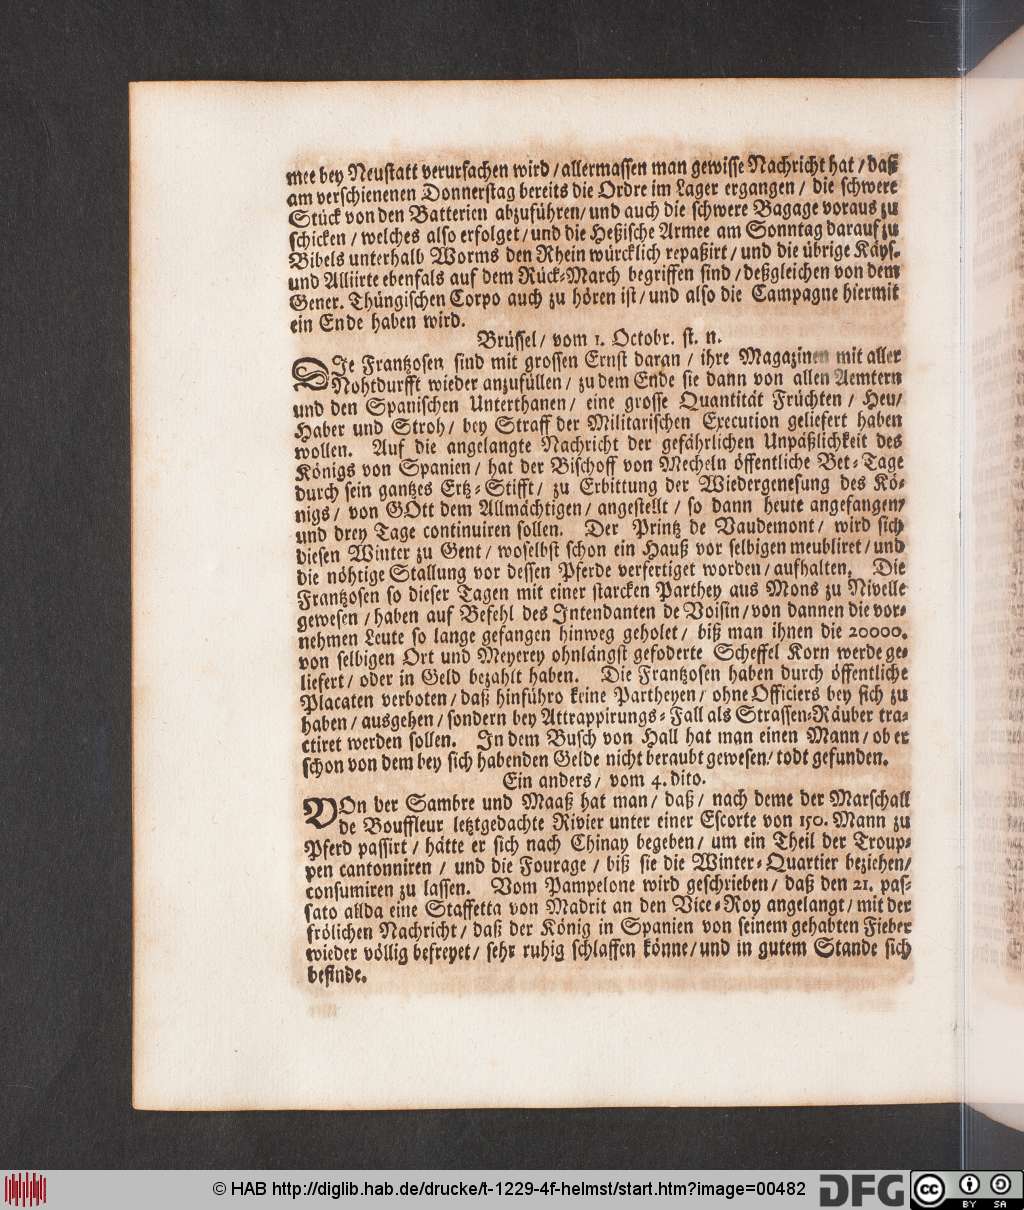 mee bey Neustatt verursachen wird / allermassen man gewisse Nachricht hat / daß
am verschienenen Donnerstag bereits die Ordre im Lager ergangen / die schwere
Stück von den Batterien abzuführen / und auch die schwere Bagage voraus zu
schicken / welches also erfolget / und die Heßische Armee am Sonntag darauf zu
Bibels unterhalb Worms den Rhein würcklich repaßirt / und die übrige Käys.
und Alliirte ebenfals auf dem Rück-March begriffen sind / deßgleichen von dem
Gener. Thüngischen Corpo auch zu hören ist / und also die Campagne hiermit
ein Ende haben wird.
Brüssel / vom 1. Octobr. st. n.
DIe Frantzosen sind mit grossen Ernst daran / ihre Magazinen mit aller
Nohtdurfft wieder anzufüllen / zu dem Ende sie dann von allen Aemtern
und den Spanischen Unterthanen / eine grosse Quantität Früchten / Heu /
Haber und Stroh / bey Straff der Militarischen Execution geliefert haben
wollen. Auf die angelangte Nachricht der gefährlichen Unpäßlichkeit des
Königs von Spanien / hat der Bischoff von Mecheln öffentliche Bet-Tage
durch sein gantzes Ertz-Stifft / zu Erbittung der Wiedergenesung des Kö-
nigs / von GOtt dem Allmächtigen / angestellt / so dann heute angefangen /
und drey Tage continuiren sollen. Der Printz de Vaudemont / wird sich
diesen Winter zu Gent / woselbst schon ein Hauß vor selbigen meubliret / und
die nöhtige Stallung vor dessen Pferde verfertiget worden / aufhalten. Die
Frantzosen so dieser Tagen mit einer starcken Parthey aus Mons zu Nivelle
gewesen / haben auf Befehl des Intendanten de Voisin / von dannen die vor-
nehmen Leute so lange gefangen hinweg geholet / biß man ihnen die 20000.
von selbigen Ort und Meyerey ohnlängst gefoderte Scheffel Korn werde ge-
liefert / oder in Geld bezahlt haben. Die Frantzosen haben durch öffentliche
Placaten verboten / daß hinführo keine Partheyen / ohne Officiers bey sich zu
haben / ausgehen / sondern bey Attrappirungs-Fall als Strassen-Räuber tra-
ctiret werden sollen. In dem Busch von Hall hat man einen Mann / ob er
schon von dem bey sich habenden Gelde nicht beraubt gewesen / todt gefunden.
Ein anders / vom 4. dito.
VOn der Sambre und Maaß hat man / daß / nach deme der Marschall
de Bouffleur letztgedachte Rivier unter einer Escorte von 150. Mann zu
Pferd passirt / hätte er sich nach Chinay begeben / um ein Theil der Troup-
pen cantonniren / und die Fourage / biß sie die Winter-Quartier beziehen /
consumiren zu lassen. Vom Pampelone wird geschrieben / daß den 21. pas-
sato allda eine Staffetta von Madrit an den Vice-Roy angelangt / mit der
frölichen Nachricht / daß der König in Spanien von seinem gehabten Fieber
wieder völlig befreyet / sehr ruhig schlaffen könne / und in gutem Stande sich
befinde.
© HAB http://diglib.hab.de/drucke/t-1229-4f-helmst/start.htm?image=00482
DFG
cc BY SA